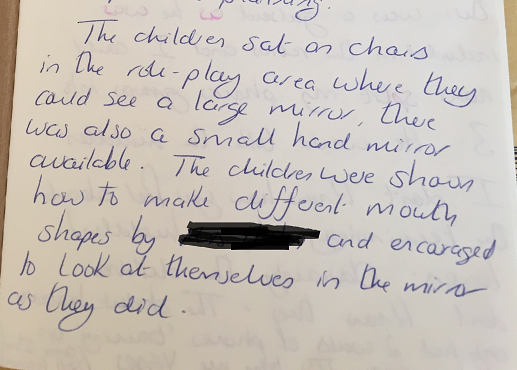 The children sat on chairs
in the role-play area where they
could see a large mirror, there
was also a small hand mirror
available. The children were shown
how to make different mouth
shapes by and encouraged
to look at themselves in the mirror
as they did.